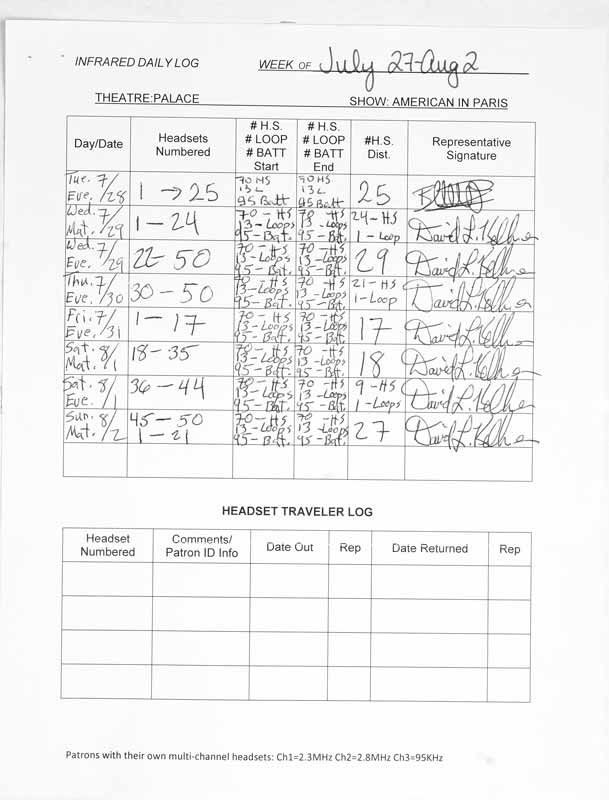 INFRARED DAILY LOG WEEK OF July 27-Aug 2
THEATRE:PALACE SHOW: AMERICAN IN PARIS
Day/Date Headsets Numbered # H.S. # LOOP # BATT Start # H.S. # LOOP # BATT End #H.S. Dist. Representative Signature
Tue. 7/28 Eve. 1 → 25 70 HS 13 L 95 Batt 90 HS 13 L 95 Batt 25
Wed. 7/29 Mat. 1 - 24 70 - HS 13 - Loops 95 - Bat. 70 - HS 13 - Loops 95 - Bt. 24 - HS 1 - Loop David L. Kelh
Wed. 7/29 Eve. 22 - 50 70 - HS 13 - Loops 95 - Bat. 70 - HS 13 - Loops 95 - Bt. 29 David L. Kelh
Thu. 7/30 Eve. 30 - 50 70 - HS 13 - Loops 95 - Bat. 70 - HS 13 - Loops 95 - Bt. 21 - HS 1 - Loop David L. Kelh
Fri. 7/31 Eve. 1 - 17 70 - HS 13 - Loops 95 - Bat. 70 - HS 13 - Loops 95 - Bt. 17 David L. Kelh
Sat. 8/1 Mat. 18 - 35 70 - HS 13 - Loops 95 - Bat. 70 - HS 13 - Loops 95 - Bt. 18 David L. Kelh
Sat. 8/1 Eve. 36 - 44 70 - HS 13 - Loops 95 - Bat. 70 - HS 13 - Loops 95 - Bt. 9 - HS 1 - Loops David L. Kelh
Sun. 8/2 Mat. 45 - 50 1 - 21 70 - HS 13 - Loops 95 - Bat. 70 - HS 13 - Loops 95 - Bt. 27 David L. Kelh
HEADSET TRAVELER LOG
Headset Numbered Comments/ Patron ID Info Date Out Rep Date Returned Rep
Patrons with their own multi-channel headsets: Ch1=2.3MHz Ch2=2.8MHz Ch3=95KHz